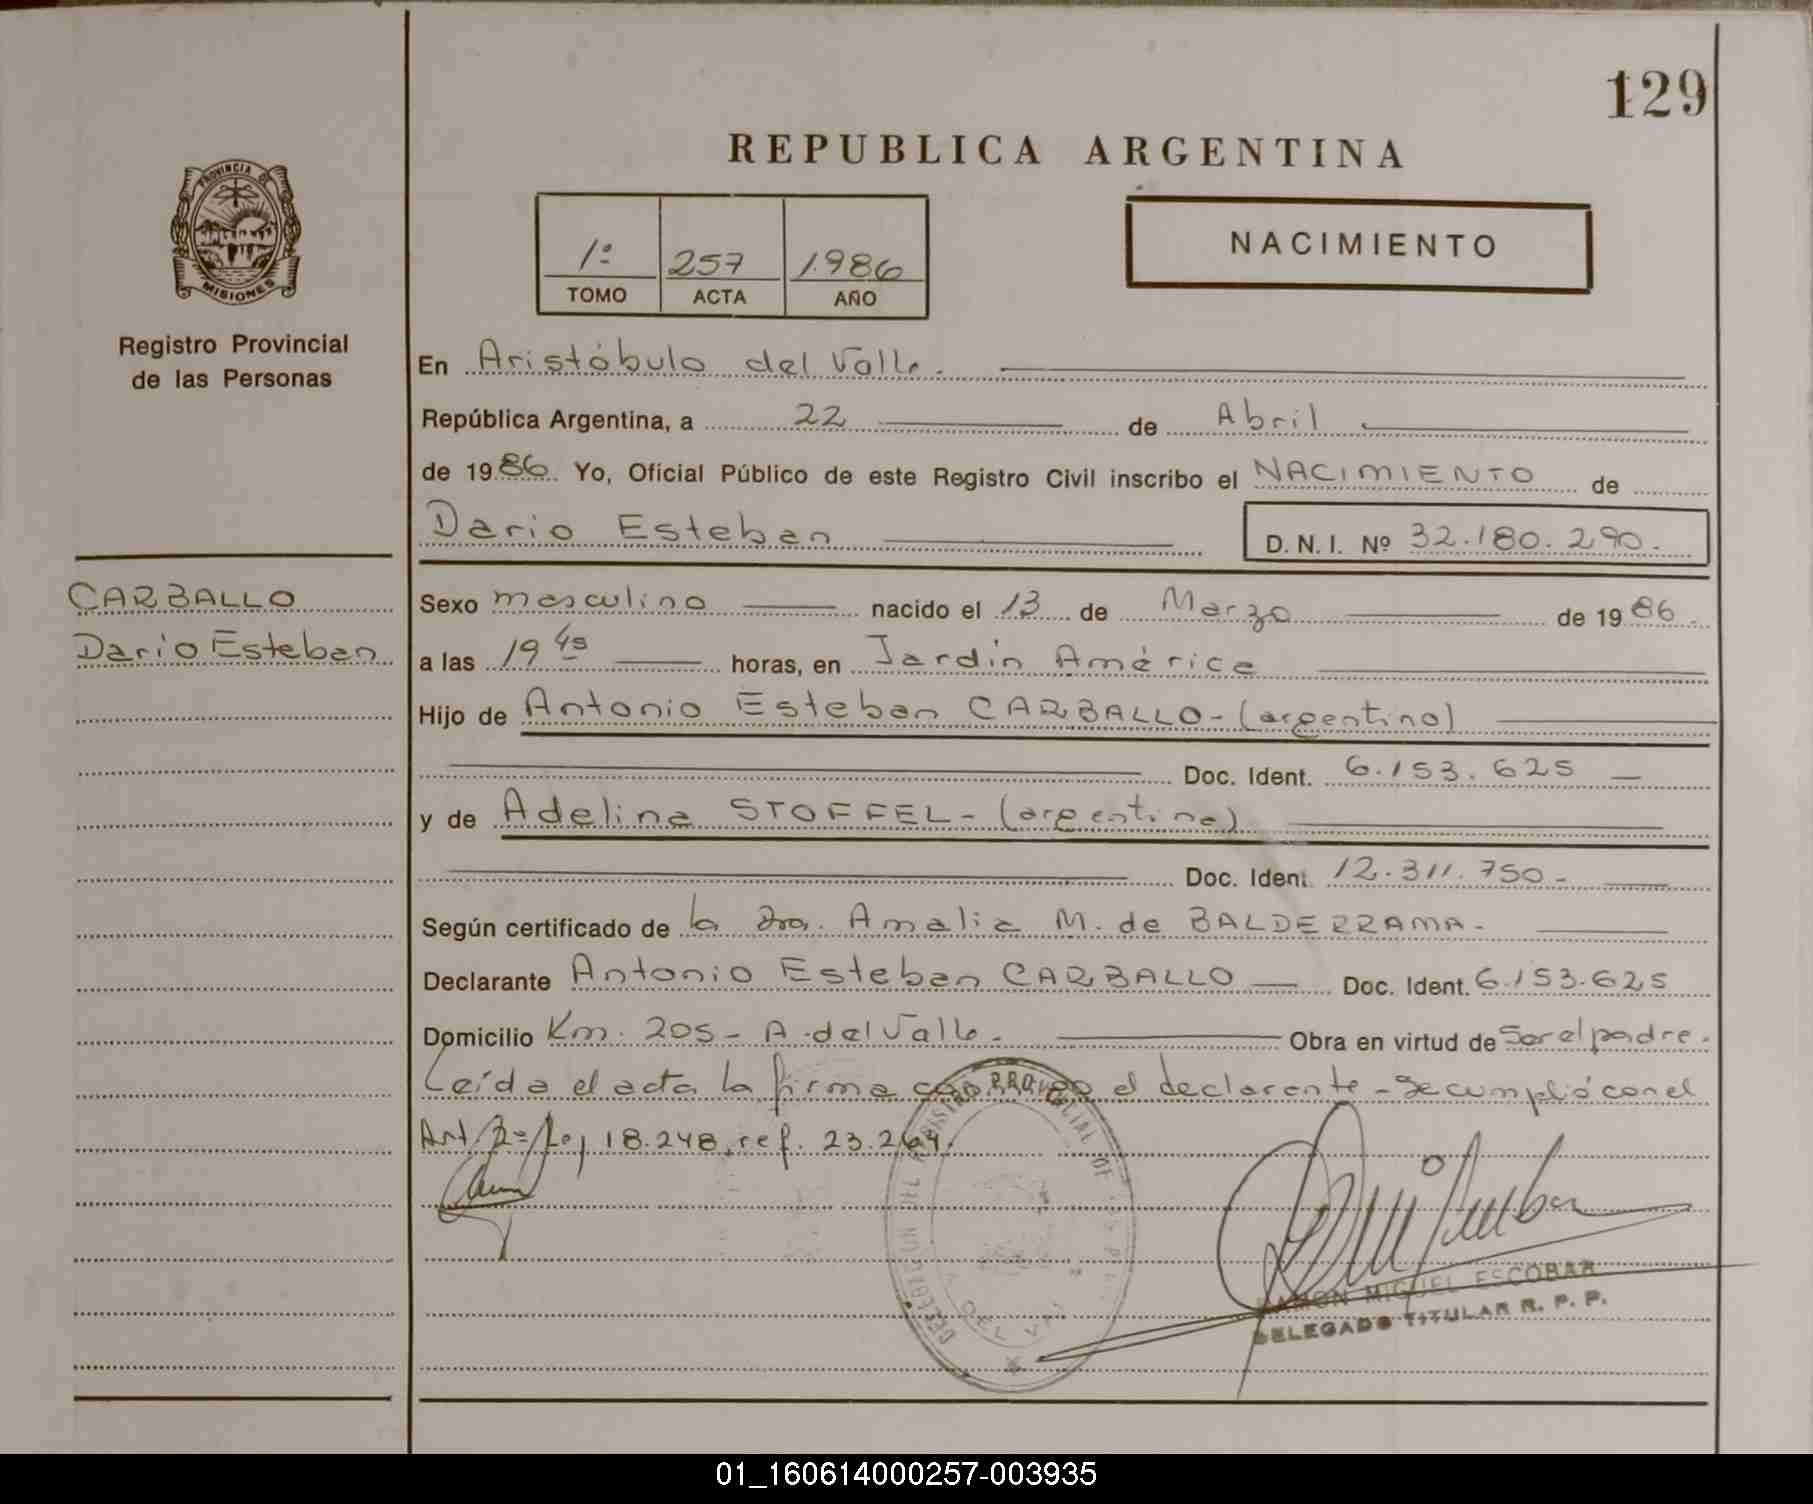 129
REPUBLICA ARGENTINA
PROVINCIA DE
MISIONES
Registro Provincial
de las Personas
1º 257 1986
TOMO ACTA AÑO
NACIMIENTO
En Aristóbulo del Valle.
República Argentina, a 22 de Abril
de 1986 Yo, Oficial Público de este Registro Civil inscribo el NACIMIENTO de
Dario Esteban D.N.I. Nº 32.180.290.
CARBALLO
Dario Esteban
Sexo masculino nacido el 13 de Marzo de 1986
a las 19 45 horas, en Jardín América
Hijo de Antonio Esteban CARBALLO-(argentino)
Doc. Ident. 6.153.625
y de Adelina STOFFEL-(argentina)
Doc. Ident. 12.311.750-
Según certificado de la Dra. Amalia M. de BALDERRAMA-
Declarante Antonio Esteban CARBALLO Doc. Ident. 6.153.625
Domicilio Km. 205- A. del Valle. Obra en virtud de Ser el padre.
Leída el acta la firma conmigo el declarante-Se cumplió con el
Art 2º Ley 18.248, ref. 23.264.
DELEGACION DEL REGISTRO PROVINCIAL DE
A. DEL VALLE
RAMON MIGUEL ESCOBAR
DELEGADO TITULAR R. P. P.
01_160614000257-003935